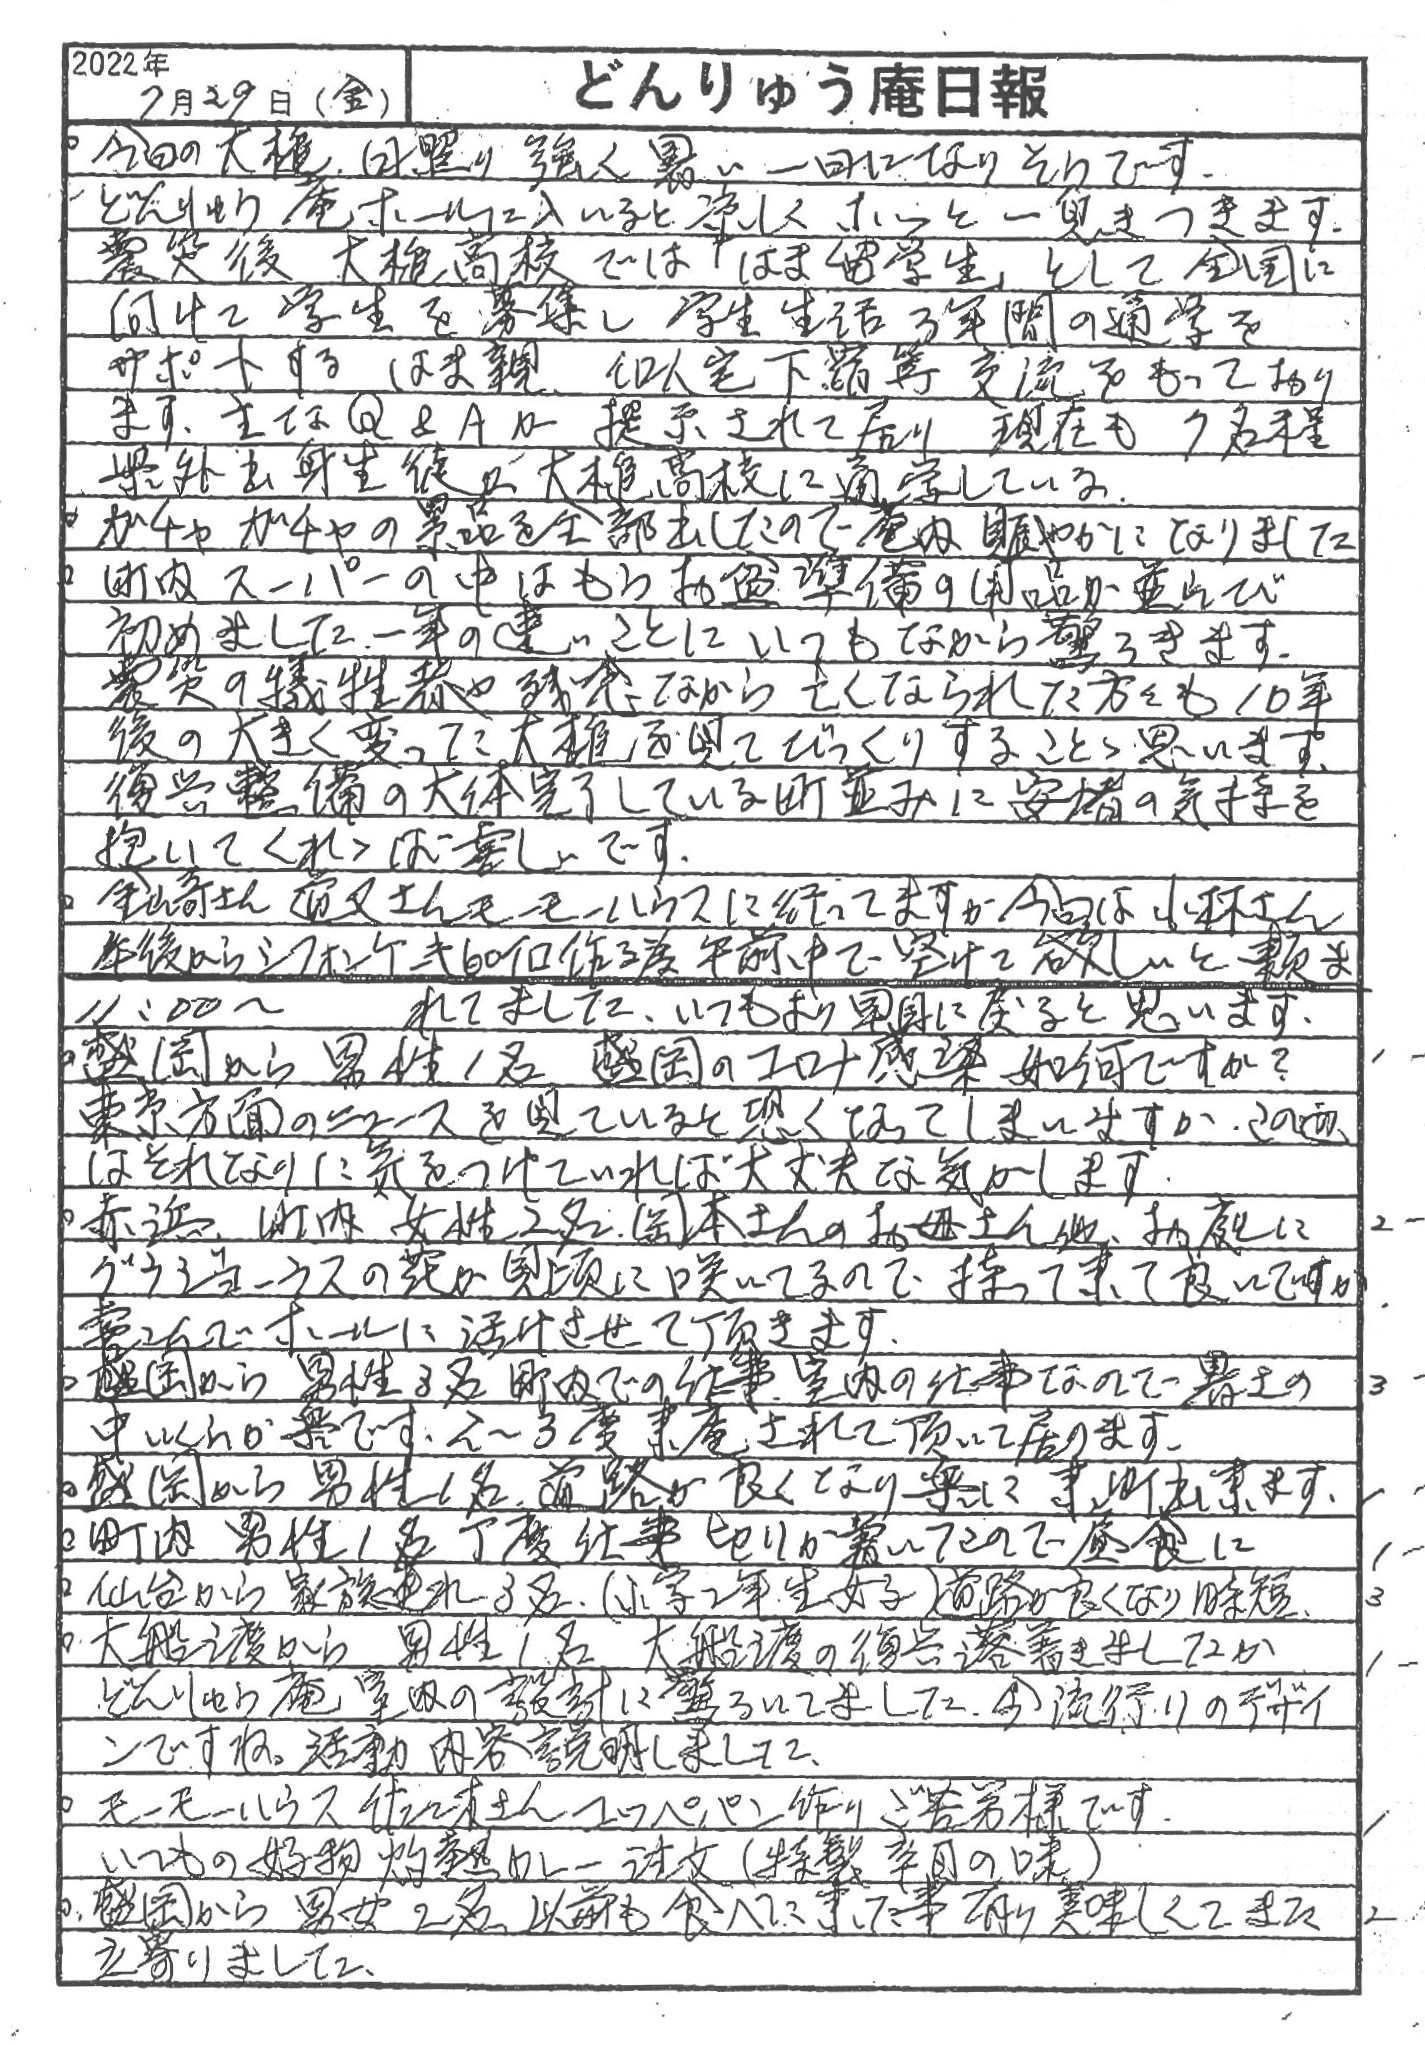 2022年
7月29日(金)
どんりゅう庵日報
今日の大槌、日照り強く暑い一日になりそうです.
どんりゅう庵ホールに入いると涼しくホッと一息きつきます.
震災後 大槌高校では「はま留学生」として全国に
向けて学生を募集し 学生生活3年間の通学を
サポートする はま親、個人宅下宿等交流をもっており
ます、主なQ&Aが 提示されて居り 現在も 7名程
県外出身生徒が大槌高校に通学している.
ガチャガチャの景品を全部出したので庵内賑やかになりました
町内スーパーの中はもうお盆準備の用品が並らび
初めました.一年の速いことにいつもながら驚ろきます.
震災の犠牲者や残念ながら亡くなられた方々も10年
後の大きく変った大槌を見てびっくりすることゝ思います.
復興整備の大体完了している町並みに安堵の気持を
抱いてくれゝば嬉しいです.
金崎さん 道又さんモーモーハウスに行ってますが今日は小林さん
午後からシフォンケーキ60個作る度 午前中で空けて欲しいと頼ま
11:00〜 れてました、いつもより早目に戻ると思います.
盛岡から 男性1名 盛岡のコロナ感染 如何ですか? 1
東京方面のニュースを見ていると恐くなってしまいますが.この
はそれなりに気をつけていれば大丈夫な気がします.
赤浜、町内 女性2名.岡本さんのお母さん他、お庭に 2
グラジョーラスの花が見頃に咲いてるので、持って来て良いですか.
喜こんでホールに活けさせて頂きます.
盛岡から 男性3名 町内での仕事、室内の仕事なので暑さの 3
中いくらか楽です、2〜3度来庵されて頂いて居ります.
盛岡から 男性1名、道路が良くなり楽に来町出来ます. 1
町内 男性1名 丁度仕事 切りが着いたので昼食に 1
仙台から 家族連れ3名.(小学2年生女子)道路が良くなり時短. 3
大船渡から 男性1名 大船渡の復興落着きましたか 1
どんりゅう庵室内の設計に驚ろいてました.今流行りのデザイ
ンですね。活動内容説明しました.
モーモーハウス 佐々木さん コッペパン作りご苦労様です. 1
いつもの好物 灼熱カレー注文(特製辛目の味)
盛岡から 男女2名、以前も食べに来た事有り美味しくてまた 2
立寄りました.